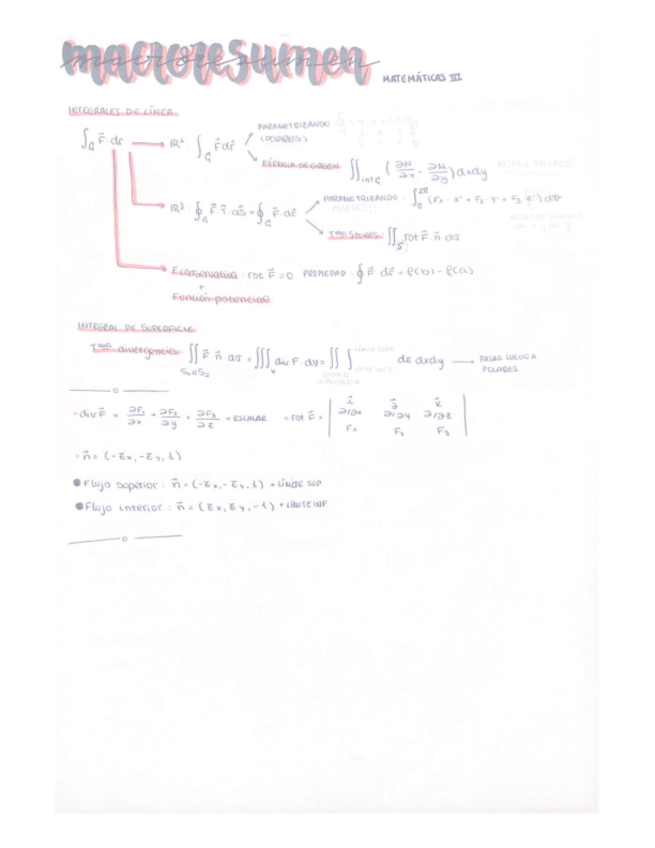 macroresumen MATEMÁTICAS III
INTEGRALES DE LÍNEA
∫_C F⃗·ds → R² : ∫_C F⃗ dr⃗
PARAMETRIZANDO (POLARES)
FÓRMULA DE GREEN ∬_int C (∂N/∂x − ∂M/∂y) dxdy
R³ : ∮_C F⃗ T⃗ · dS = ∮_C F⃗ dr⃗
PARAMETRIZANDO : ∫₀^2π (F₁ · x' + F₂ · y' + F₃ z') dθ
TMA STOKES : ∬_S rot F⃗ · n⃗ dS
F conservativa : rot F⃗ = 0 PROPIEDAD : ∮ F⃗ dr⃗ = φ(b) − φ(a)
+
Función potencial
INTEGRAL DE SUPERFICIE
Tma divergencia: ∬_S₁∪S₂ F⃗ n⃗ dS = ∭_V div F · dV = ∬ ∫ dz dxdy → PASAR LUEGO A POLARES
div F⃗ = ∂F₁/∂x + ∂F₂/∂y + ∂F₃/∂z = ESCALAR
rot F⃗ = | i⃗ j⃗ k⃗
∂/∂x ∂/∂y ∂/∂z
F₁ F₂ F₃ |
n⃗ = (−Zx, −Zy, 1)
Flujo superior : n⃗ = (−Zx, −Zy, 1) + LÍMITE SUP
Flujo inferior : n⃗ = (Zx, Zy, −1) + LÍMITE INF